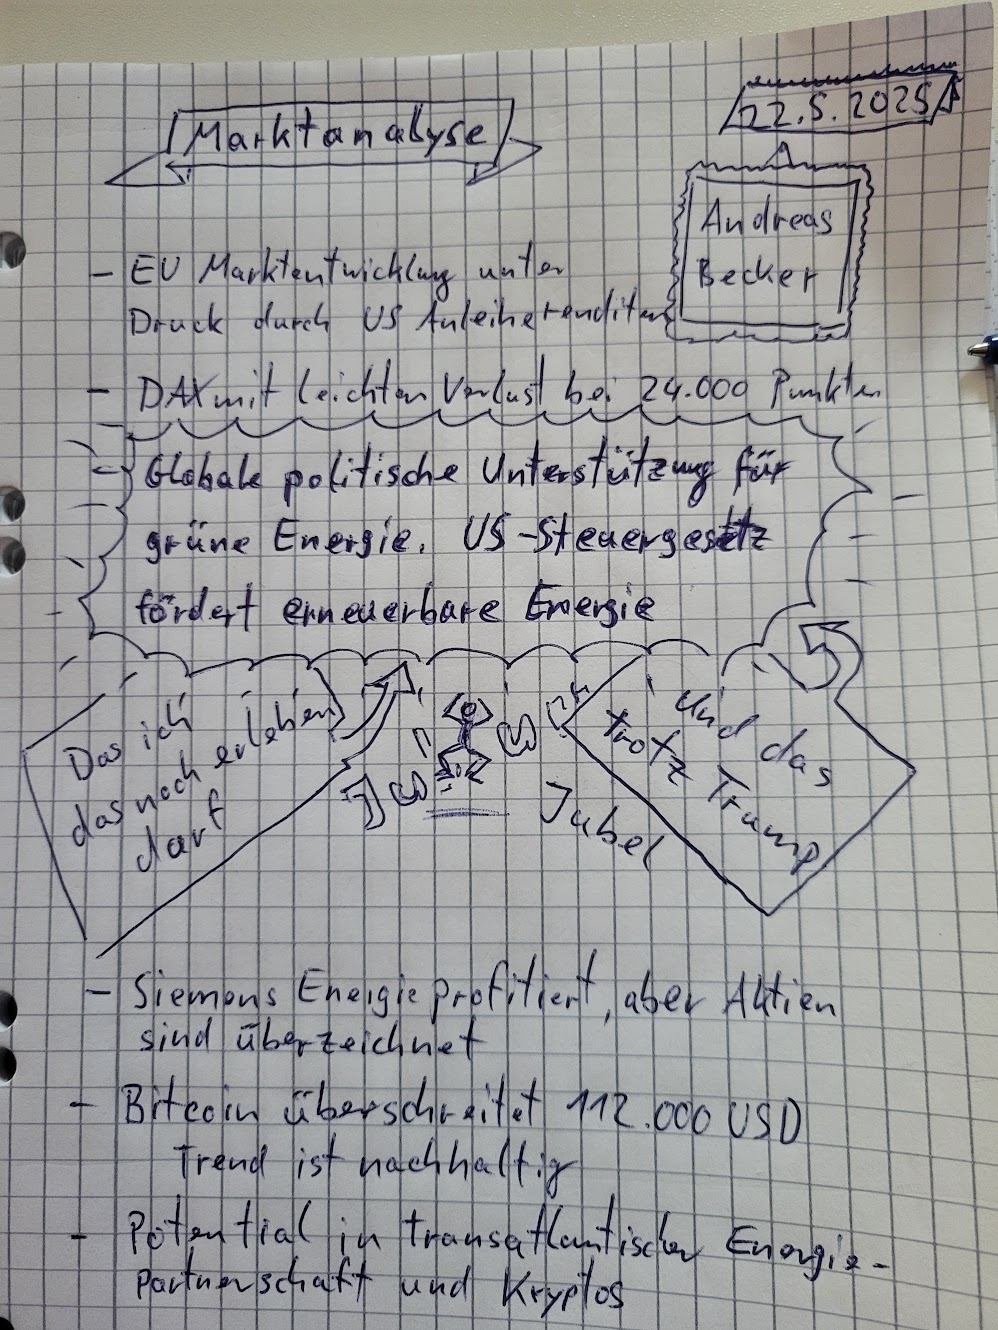 Marktanalyse
22.5.2025
Andreas
Becker
- EU Marktentwicklung unter
Druck durch US Anleiherenditen
- DAX mit leichten Verlust bei 24.000 Punkten
- Globale politische Unterstützung für
grüne Energie. US-Steuergesetz
fördert erneuerbare Energie
Das ich
das noch erleben
darf
Jubel
Und das
trotz Trump
- Siemens Energie profitiert, aber Aktien
sind überzeichnet
- Bitcoin überschreitet 112.000 USD
Trend ist nachhaltig
- Potential in transatlantischer Energie-
partnerschaft und Kryptos